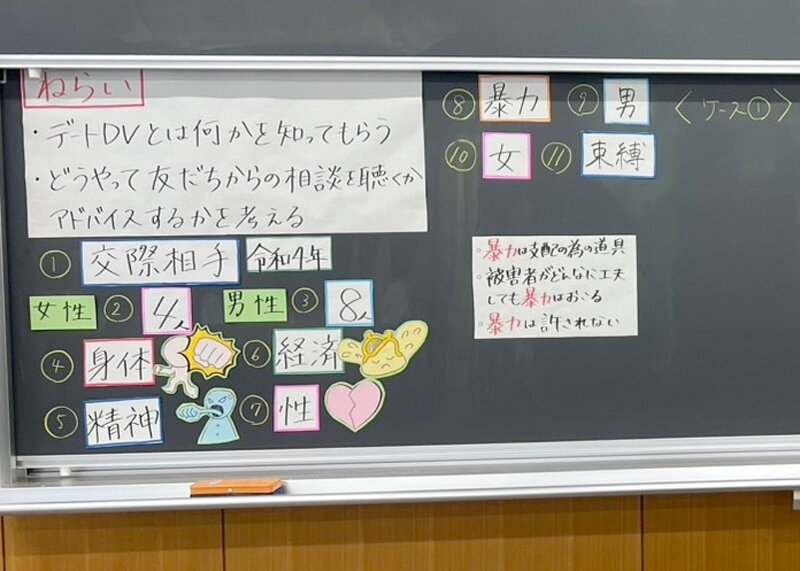 ねらい
・デートDVとは何かを知ってもらう
・どうやって友だちからの相談を聴くか
アドバイスするかを考える
① 交際相手 令和4年
女性 ② 4人 男性 ③ 8人
④ 身体 ⑥ 経済
⑤ 精神 ⑦ 性
⑧ 暴力 ⑨ 男 〈ケース①〉
⑩ 女 ⑪ 束縛
・暴力は支配の為の道具
・被害者がどんなに工夫
しても暴力はおこる
・暴力は許されない